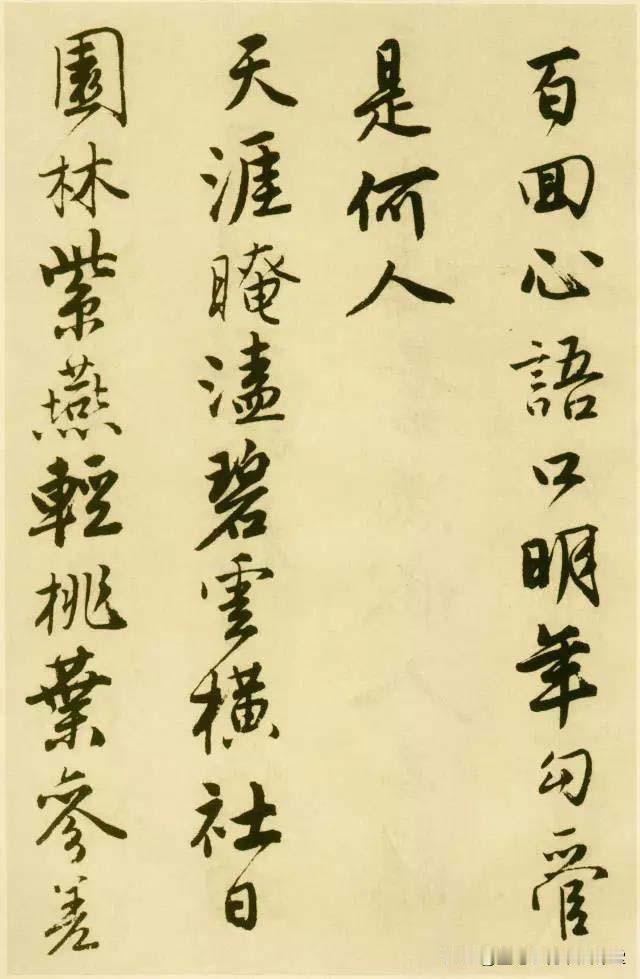 百回心語口明年勾管
是何人
天涯晻溘碧雲橫社日
園林紫燕輕桃葉參差